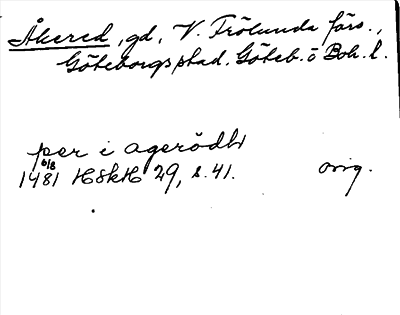 Åkered, gd, V. Frölunda förs.,
Göteborgs stad. Göteb. o Boh. l.
per i agerödh
1481 6/8 HSkH 29, s. 41. orig.